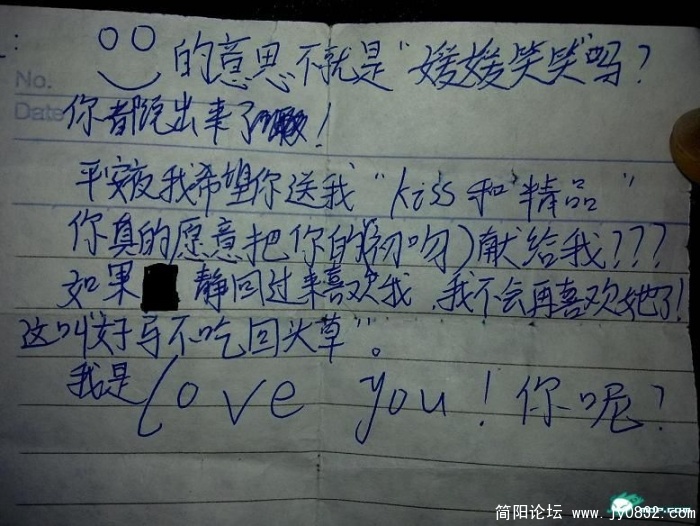 No.
Date
的意思不就是"媛媛笑笑"吗?
你都说出来了!
平安夜我希望你送我"kiss和精品"
你真的愿意把你的(初吻)献给我???
如果 静回过来喜欢我,我不会再喜欢她了!
这叫"好马不吃回头草"。
我是love you!你呢?
简阳论坛 www.jy0832.com